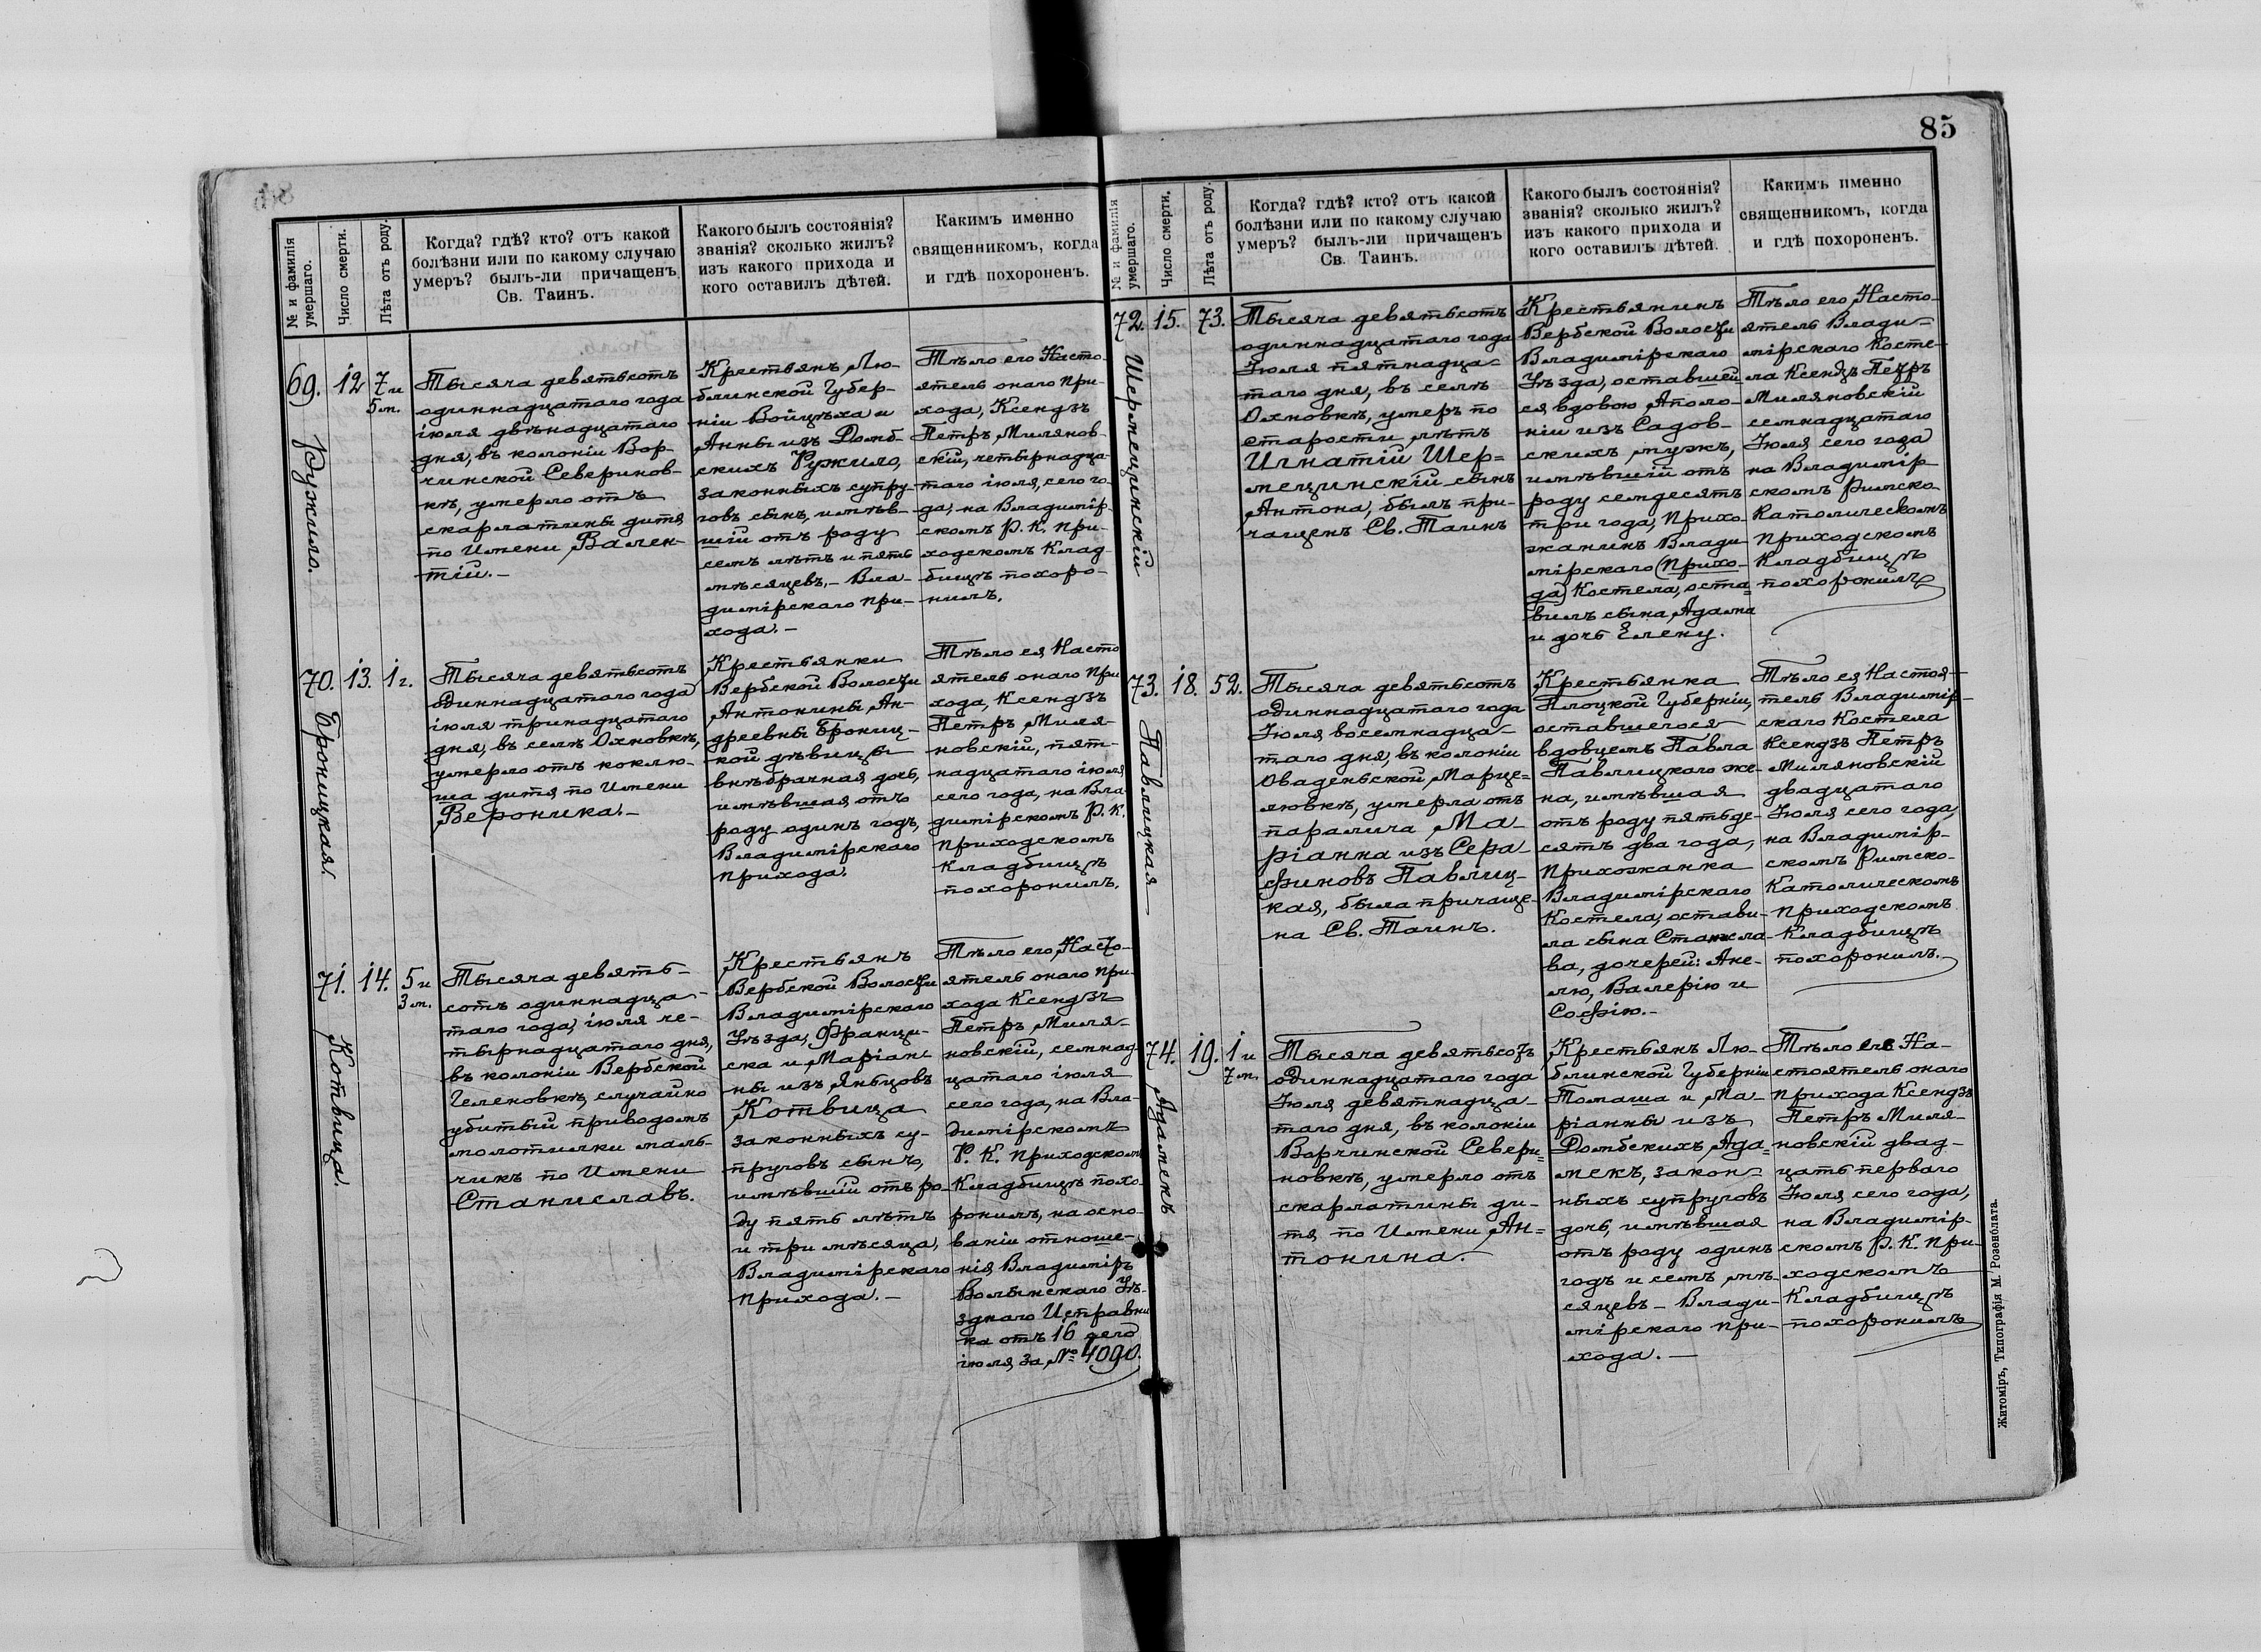 85
№ и фамилія
умершаго.
Число смерти.
Лѣта отъ роду.
Когда? гдѣ? кто? отъ какой
болѣзни или по какому случаю
умеръ? былъ-ли причащенъ
Св. Таинъ.
Какого былъ состоянія?
званія? сколько жилъ?
изъ какого прихода и
кого оставилъ дѣтей.
Какимъ именно
священникомъ, когда
и гдѣ похороненъ.
69.
Ружило.
12
7 и
5 м.
Тысяча девятьсотъ
одиннадцатаго года
іюля двѣнадцатаго
дня, въ колоніи Вор-
чинской Северинов-
кѣ, умерло отъ
скарлатины дитя
по имени Вален-
тій.-
Крестьянъ Лю-
блинской Губер-
ніи Войцѣха и
Анны изъ Домб-
скихъ Ружило,
законныхъ супру-
говъ сынъ, имѣв-
шій отъ роду
семъ лѣтъ и пять
мѣсяцевъ.- Вла-
димірскаго при-
хода.-
Тѣло его Насто-
ятель онаго при-
хода, Ксендзъ
Петръ Милянов-
скій, четырнадца-
таго іюля, сего го-
да, на Владимір-
скомъ Р. К. при-
ходскомъ клад-
бищѣ похоро-
нилъ.
70.
Броницкая.
13.
1 г.
Тысяча девятьсотъ
одиннадцатаго года
іюля тринадцатаго
дня, въ селѣ Охновкѣ,
умерло отъ коклю-
ша дитя по имени
Вероника.-
Крестьянки
Вербской Волости
Антонины Ан-
дреевны Брониц-
кой дѣвицы
внѣбрачная дочь,
имѣвшая отъ
роду одинъ годъ,
Владимірскаго
прихода.
Тѣло ея Насто
ятель онаго При
хода, Ксендзъ
Петръ Миля-
новскій, пят-
надцатаго іюля
сего года, на Вла-
димірскомъ Р. К.
приходскомъ
кладбищѣ
похоронилъ.
71.
Котвица.
14.
5 и
3 м.
Тысяча девять-
сотъ одиннадца-
таго года, іюля че-
тырнадцатаго дня,
въ колоніи Вербской
Геленовкѣ, случайно
убитый приводомъ
молотилки маль-
чикъ по имени
Станиславъ.
Крестьянъ
Вербской Волости
Владимірскаго
Уѣзда, Франци-
ска и Маріан-
ны изъ Яньцовъ
Котвица
законныхъ су-
пруговъ сынъ,
имѣвшій отъ ро-
ду пять лѣтъ
и три мѣсяца,
Владимірскаго
прихода.-
Тѣло его, Насто-
ятель онаго при-
хода Ксендзъ
Петръ Миля-
новскій, семнад
цатаго іюля
сего года, на Вла-
димірскомъ
Р. К. приходском
кладбищѣ похо-
ронилъ, на осно-
ваніи отноше-
нія Владиміръ
Волынскаго Уѣ-
зднаго Исправни
ка отъ 16 сего
іюля за № 4090.
№ и фамилія
умершаго.
Число смерти.
Лѣта отъ роду.
Когда? гдѣ? кто? отъ какой
болѣзни или по какому случаю
умеръ? былъ-ли причащенъ
Св. Таинъ.
Какого былъ состоянія?
званія? сколько жилъ?
изъ какого прихода и
кого оставилъ дѣтей.
Какимъ именно
священникомъ, когда
и гдѣ похороненъ.
72.
Шермецинскій
15.
73.
Тысяча девятьсотъ
одиннадцатаго года
Іюля пятнадца-
таго дня, въ селѣ
Охновкѣ, умеръ по
старости лѣтъ
Игнатій Шер=
мецинскій сынъ
Антона, былъ при-
чащенъ Св. Таинъ
Крестьянинъ
Вербской Волости
Владимірскаго
Уѣзда, оставшей
ся вдовою Аполо-
ніи изъ Садов-
скихъ мужъ,
имѣвшій отъ
роду семдесятъ
три года, Прихо-
жанинъ Влади-
мірскаго (Прихо-
да) Костела, оста=
вилъ сына Адама
и дочь Елену.
Тѣло его Насто-
ятель Влади-
мірскаго Косте-
ла Ксендзъ Петръ
Миляновскій
семнадцатаго
Іюля сего года
на Владимір
скомъ Римско-
Католическомъ
приходскомъ
Кладбищѣ
похоронилъ
73.
Павлицкая
18.
52.
Тысяча девятьсотъ
одиннадцатаго года
Іюля восемнадца-
таго дня, въ колоніи
Оваденьской, Марце=
ловкѣ, умерла отъ
паралича Ма-
ріанна изъ Сера-
финовъ Павлиц-
кая, была причаще-
на Св. Таинъ.
Крестьянка
Плоцкой Губерніи,
оставшегося
вдовцемъ Павла
Павлицкого же-
на, имѣвшая
отъ роду пятьде-
сятъ два года,
Прихожанка
Владимірскаго
Костела, остави-
ла сына Станисла-
ва, дочерей: Ане-
лю, Валерію и
Софію.-
Тѣло ея Настоя-
тель Владимір-
скаго Костела
Ксендзъ Петръ
Миляновскій
двадцатаго
Іюля сего года,
на Владимір-
скомъ Римско-
Католическомъ
приходскомъ
Кладбищѣ
похоронилъ.
74.
Адамекъ
19.
1 и
7 м.
Тысяча девятьсотъ
одиннадцатаго года
Іюля девятнадца-
таго дня, въ колоніи
Ворчинской Севери=
новкѣ, умерло отъ
скарлатины ди-
тя по Имени Ан=
тонина.
Крестьянъ Лю-
блинской Губерніи
Томаша и Ма-
ріанны изъ
Домбскихъ Ада=
мекъ, закон-
ныхъ супруговъ
дочь, имѣвшая
отъ роду одинъ
годъ и семъ мѣ-
сяцевъ - Влади-
мірскаго при-
хода.-
Тѣло ея На-
стоятель онаго
прихода Ксендзъ
Петръ Миля-
новскій двад-
цать перваго
Іюля, сего года,
на Владимір-
скомъ Р. К. при-
ходскомъ
Кладбищѣ
похоронилъ
Житоміръ, Типографія М. Розенблата.